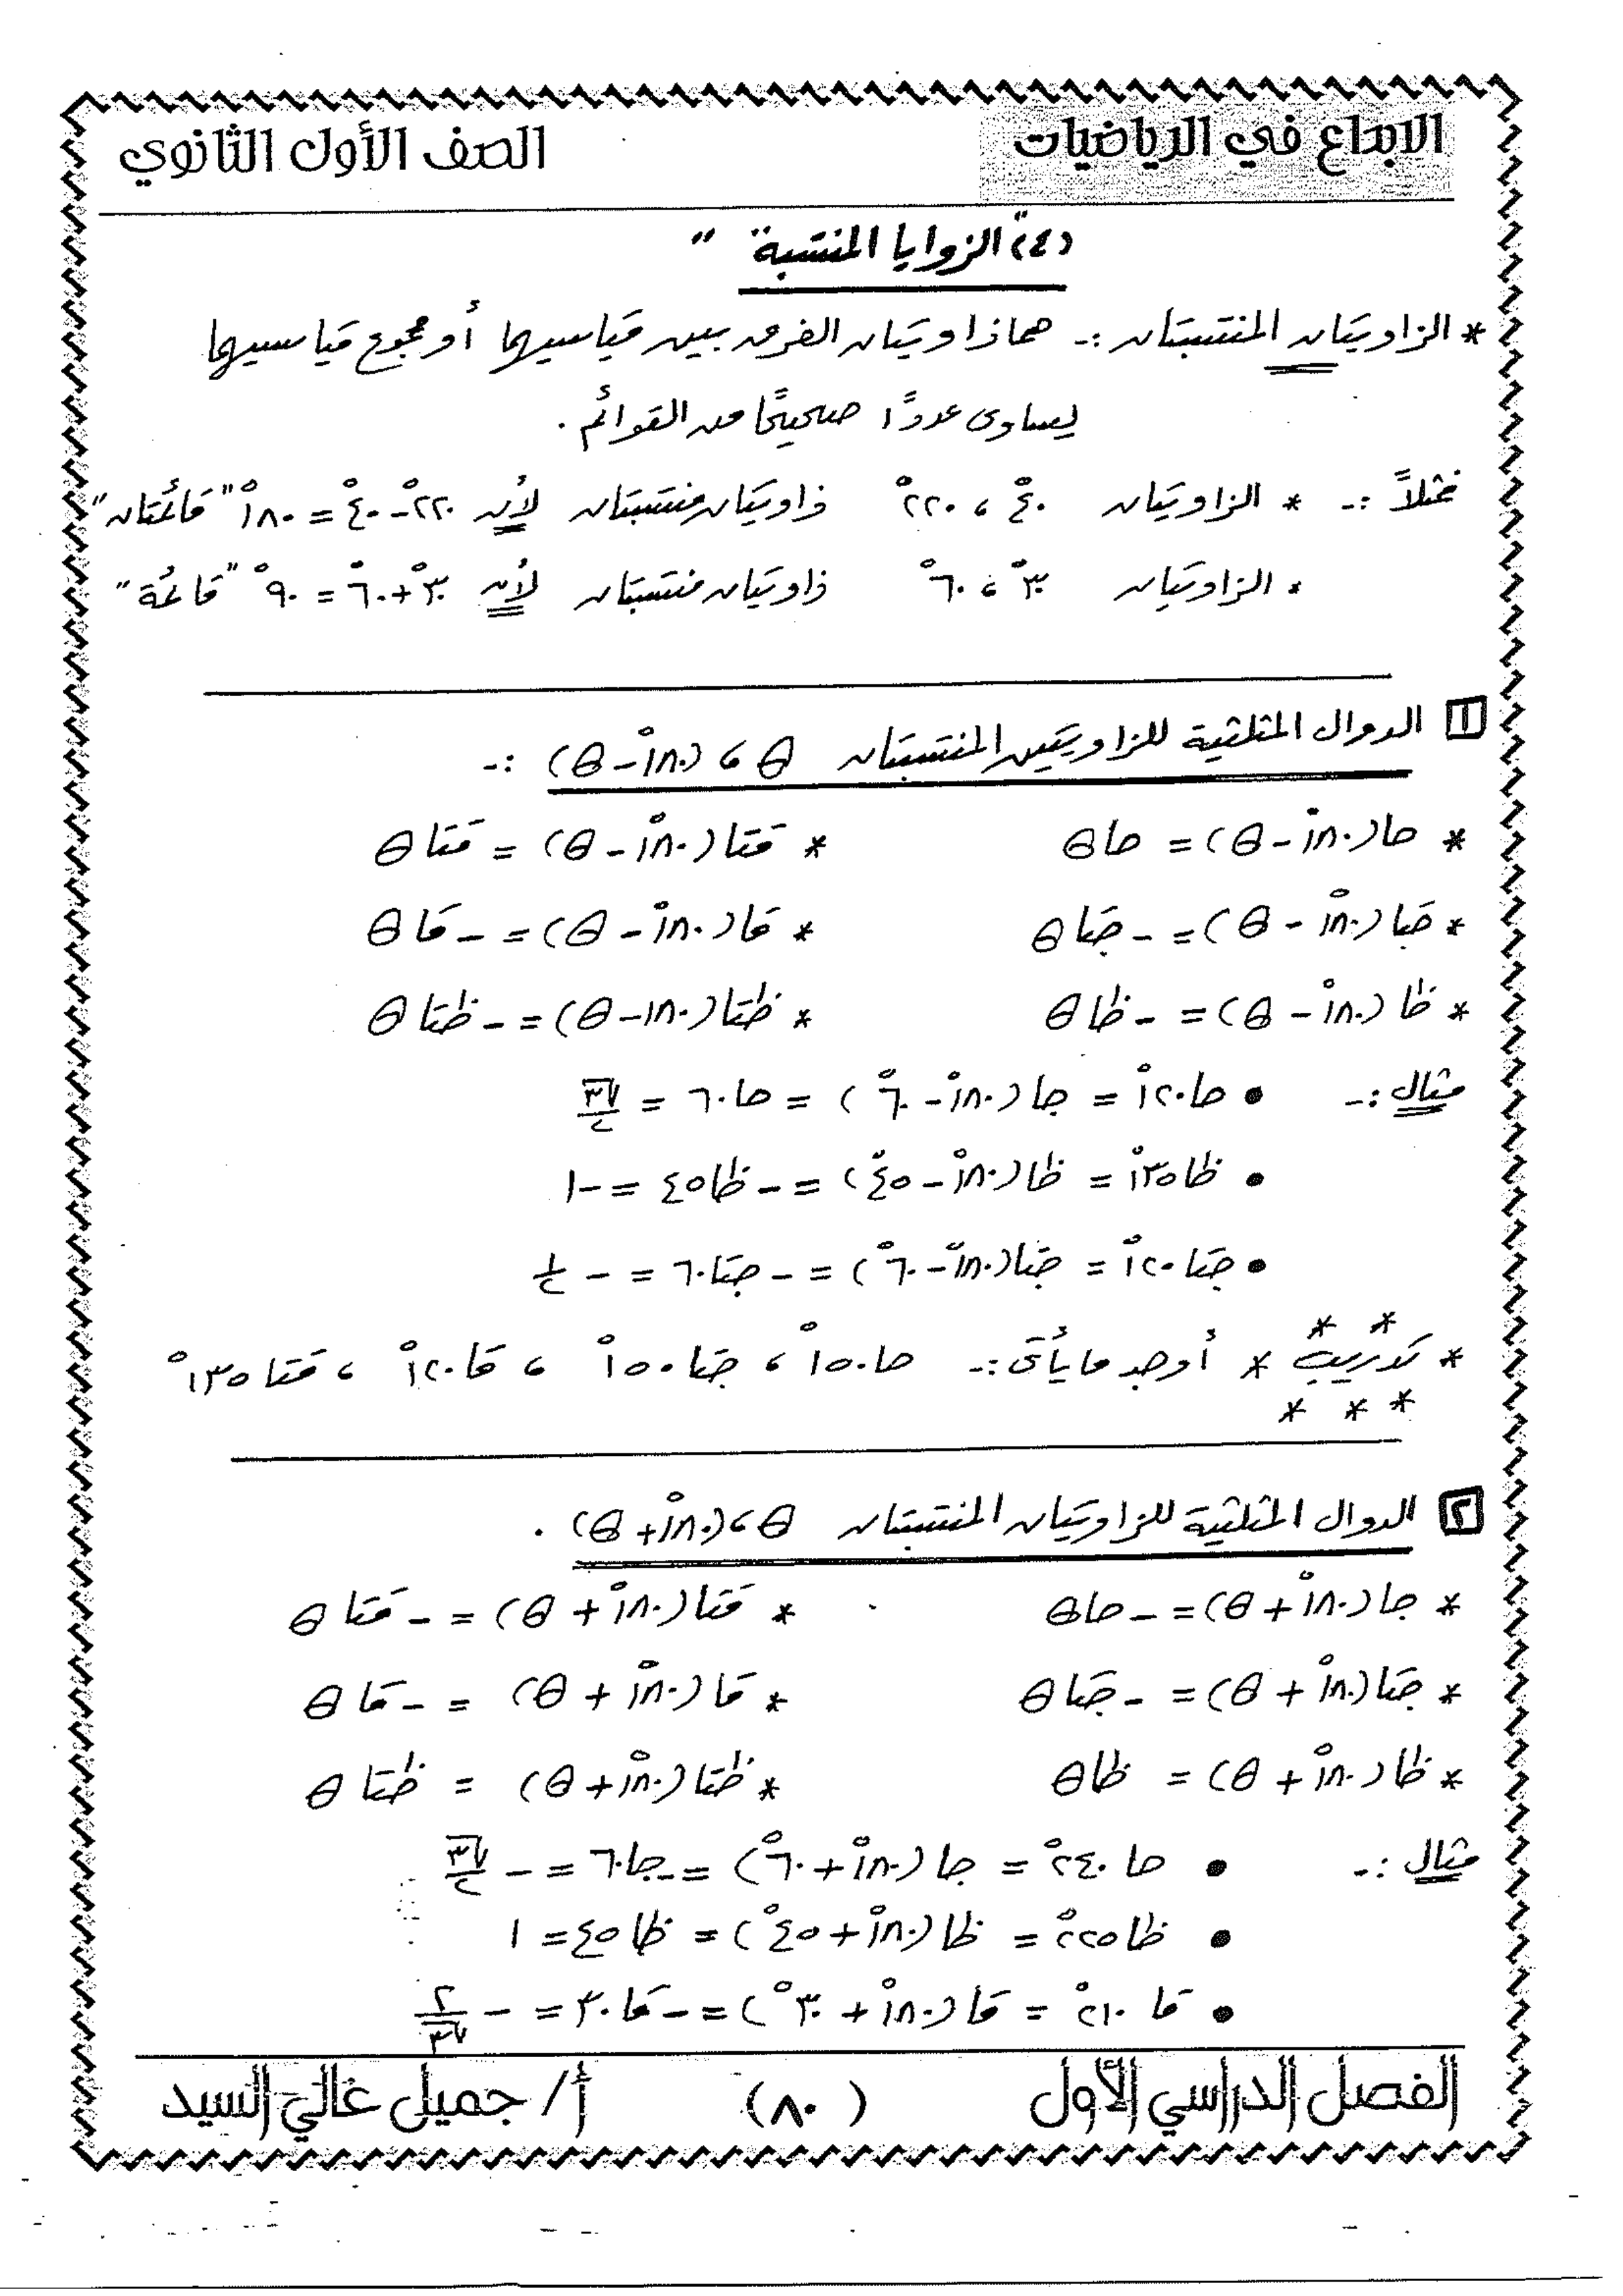 الابداع في الرياضيات
الصف الأول الثانوي
(٤) "الزوايا المنتسبة"
* الزاويتان المنتسبتان :- هما زاويتان الفرق بين قياسيهما أو مجموع قياسيهما
يساوى عددًا صحيحًا من القوائم .
فمثلاً :- * الزاويتان ٤٠° ، ٢٢٠° زاويتان منتسبتان لأن ٢٢٠° - ٤٠° = ١٨٠° "قائمتان"
* الزاويتان ٣٠° ، ٦٠° زاويتان منتسبتان لأن ٣٠° + ٦٠° = ٩٠° "قائمة"
١ الدوال المثلثية للزاويتين المنتسبتان θ ، (١٨٠° - θ) :-
* حا (١٨٠° - θ) = حا θ * قتا (١٨٠° - θ) = قتا θ
* جتا (١٨٠° - θ) = - جتا θ * قا (١٨٠° - θ) = - قا θ
* ظا (١٨٠° - θ) = - ظا θ * ظتا (١٨٠ - θ) = - ظتا θ
مثال :- • حا ١٢٠° = جا (١٨٠° - ٦٠°) = حا ٦٠ = √٣/٢
• ظا ١٣٥° = ظا (١٨٠° - ٤٥°) = - ظا ٤٥ = -١
• جتا ١٢٠° = جتا (١٨٠° - ٦٠°) = - جتا ٦٠ = - ١/٢
* تدريب * أوجد ما يأتى :- حا ١٥٠° ، جتا ١٥٠° ، قا ١٢٠° ، قتا ١٣٥°
٢ الدوال المثلثية للزاويتان المنتسبتان θ ، (١٨٠° + θ) .
* جا (١٨٠° + θ) = - حا θ * قتا (١٨٠° + θ) = - قتا θ
* جتا (١٨٠° + θ) = - جتا θ * قا (١٨٠° + θ) = - قا θ
* ظا (١٨٠° + θ) = ظا θ * ظتا (١٨٠° + θ) = ظتا θ
مثال :- • حا ٢٤٠° = جا (١٨٠° + ٦٠°) = - جا ٦٠ = - √٣/٢
• ظا ٢٢٥° = ظا (١٨٠° + ٤٥°) = ظا ٤٥ = ١
• قا ٢١٠° = قا (١٨٠° + ٣٠°) = - قا ٣٠ = - ٢/√٣
الفصل الدراسي الأول
(٨٠)
أ/ جميل غالي السيد